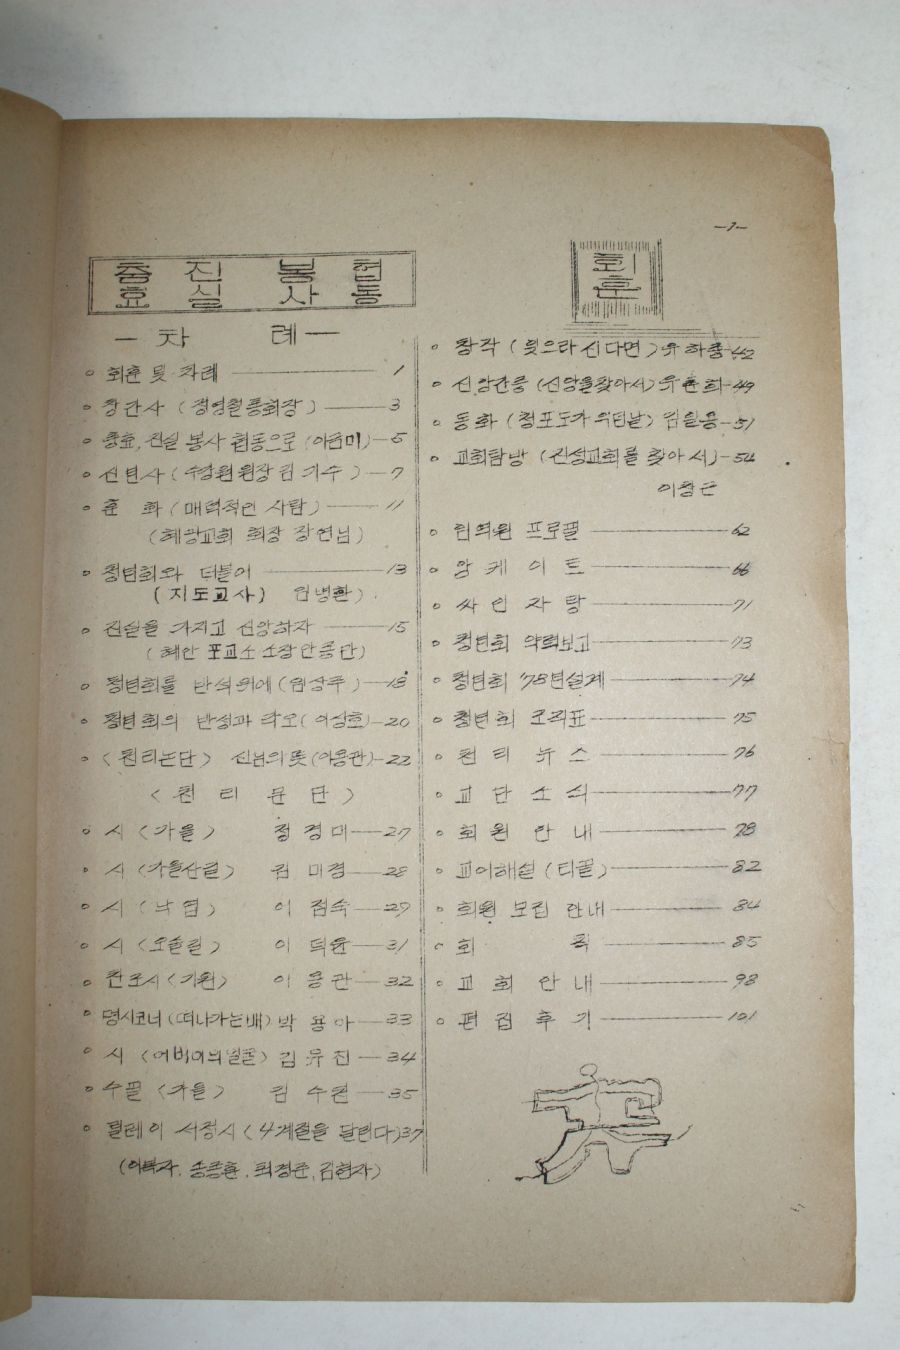 -1-
충 진 봉 협
효 실 사 동
회
훈
- 차 례 -
회훈 및 차례 1
창간사 (정영철총회장) 3
충효, 진실 봉사 협동으로 (아롬미) 5
신년사 (수강원원장 김 기수) 7
훈 화 (매력적인 사람) 11
(혜광교회 회장 장현님)
청년회와 더불어 13
(지도교사) 병환)
진실을 가지고 신앙하자 15
(혜안 포교소 소장 안종만)
청년회를 반석위에 ( 상주) 18
청년회의 반성과 각오 (여상호) 20
<천리논단> 신님의 뜻 (이응관) 22
<천 리 문 단>
시 (가을) 정 경미 27
시 (가을산길) 김 미경 28
시 (낙엽) 이 점숙 29
시 (오솔길) 이 덕윤 31
전조시 (기원) 이 응관 32
명시코너 (떠나가는배) 박 용아 33
시 (어버이의 얼굴) 김 유진 34
수필 (가을) 김 수진 35
릴레이 서정시 (4계절을 달린다) 37
(이복자, 송종훈, 최정순, 김현자)
창작 (믿으라 신다면) 유 하종 42
신앙간증 (신앙을 찾아서) 유 춘희 49
동화 (청포도가 익던날) 김일웅 51
교회탐방 (진성교회를 찾아서) 54
이창근
임역원 프로필 62
앙 케 이 트 66
싸 인 자 랑 71
청년회 약력보고 73
청년회 '78년설계 74
청년회 조직표 75
천 리 뉴 스 76
교 단 소 식 77
회 원 안 내 78
교어해설 (티끌) 82
회원 모집 안내 84
회 칙 85
교 회 안 내 98
편 집 후 기 101